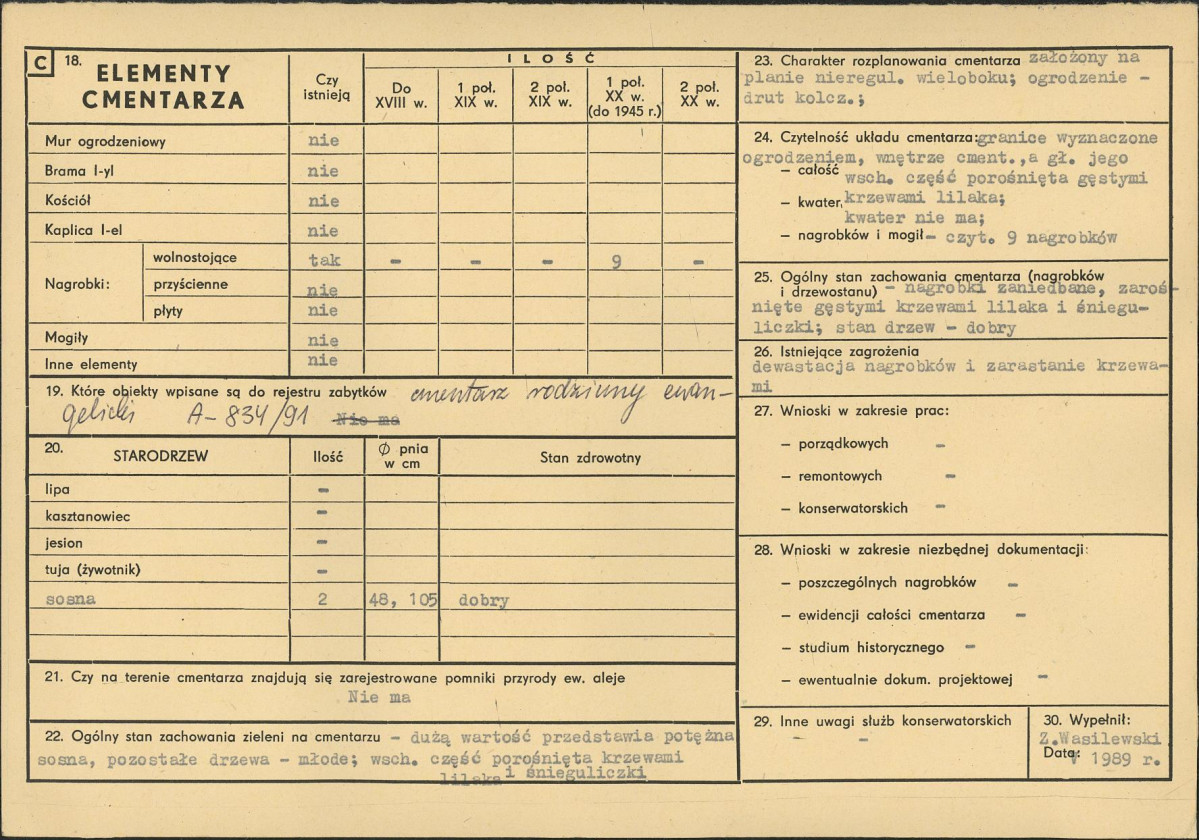 C 18. ELEMENTY CMENTARZA
Czy istnieją
ILOŚĆ
Do XVIII w.
1 poł. XIX w.
2 poł. XIX w.
1 poł. XX w. (do 1945 r.)
2 poł. XX w.
Mur ogrodzeniowy nie
Brama I-yl nie
Kościół nie
Kaplica I-el nie
Nagrobki:
wolnostojące tak - - - 9 -
przyścienne nie
płyty nie
Mogiły nie
Inne elementy nie
19. Które obiekty wpisane są do rejestru zabytków cmentarz rodzinny ewan-
gelicki A-834/91 Nie ma
20. STARODRZEW
Ilość
Ø pnia w cm
Stan zdrowotny
lipa -
kasztanowiec -
jesion -
tuja (żywotnik) -
sosna 2 48, 105 dobry
21. Czy na terenie cmentarza znajdują się zarejestrowane pomniki przyrody ew. aleje
Nie ma
22. Ogólny stan zachowania zieleni na cmentarzu - dużą wartość przedstawia potężna
sosna, pozostałe drzewa - młode; wsch. część porośnięta krzewami
lilaka i śnieguliczki
23. Charakter rozplanowania cmentarza założony na
planie nieregul. wieloboku; ogrodzenie -
drut kolcz.;
24. Czytelność układu cmentarza: granice wyznaczone
ogrodzeniem, wnętrze cment.,a gł. jego
– całość wsch. część porośnięta gęstymi
– kwater, krzewami lilaka;
kwater nie ma;
– nagrobków i mogił - czyt. 9 nagrobków
25. Ogólny stan zachowania cmentarza (nagrobków
i drzewostanu) - nagrobki zaniedbane, zaroś-
nięte gęstymi krzewami lilaka i śniegu-
liczki; stan drzew - dobry
26. Istniejące zagrożenia
dewastacja nagrobków i zarastanie krzewa-
mi
27. Wnioski w zakresie prac:
– porządkowych -
– remontowych -
– konserwatorskich -
28. Wnioski w zakresie niezbędnej dokumentacji:
– poszczególnych nagrobków -
– ewidencji całości cmentarza -
– studium historycznego -
– ewentualnie dokum. projektowej -
29. Inne uwagi służb konserwatorskich
- -
30. Wypełnił:
Z.Wasilewski
Data: V 1989 r.